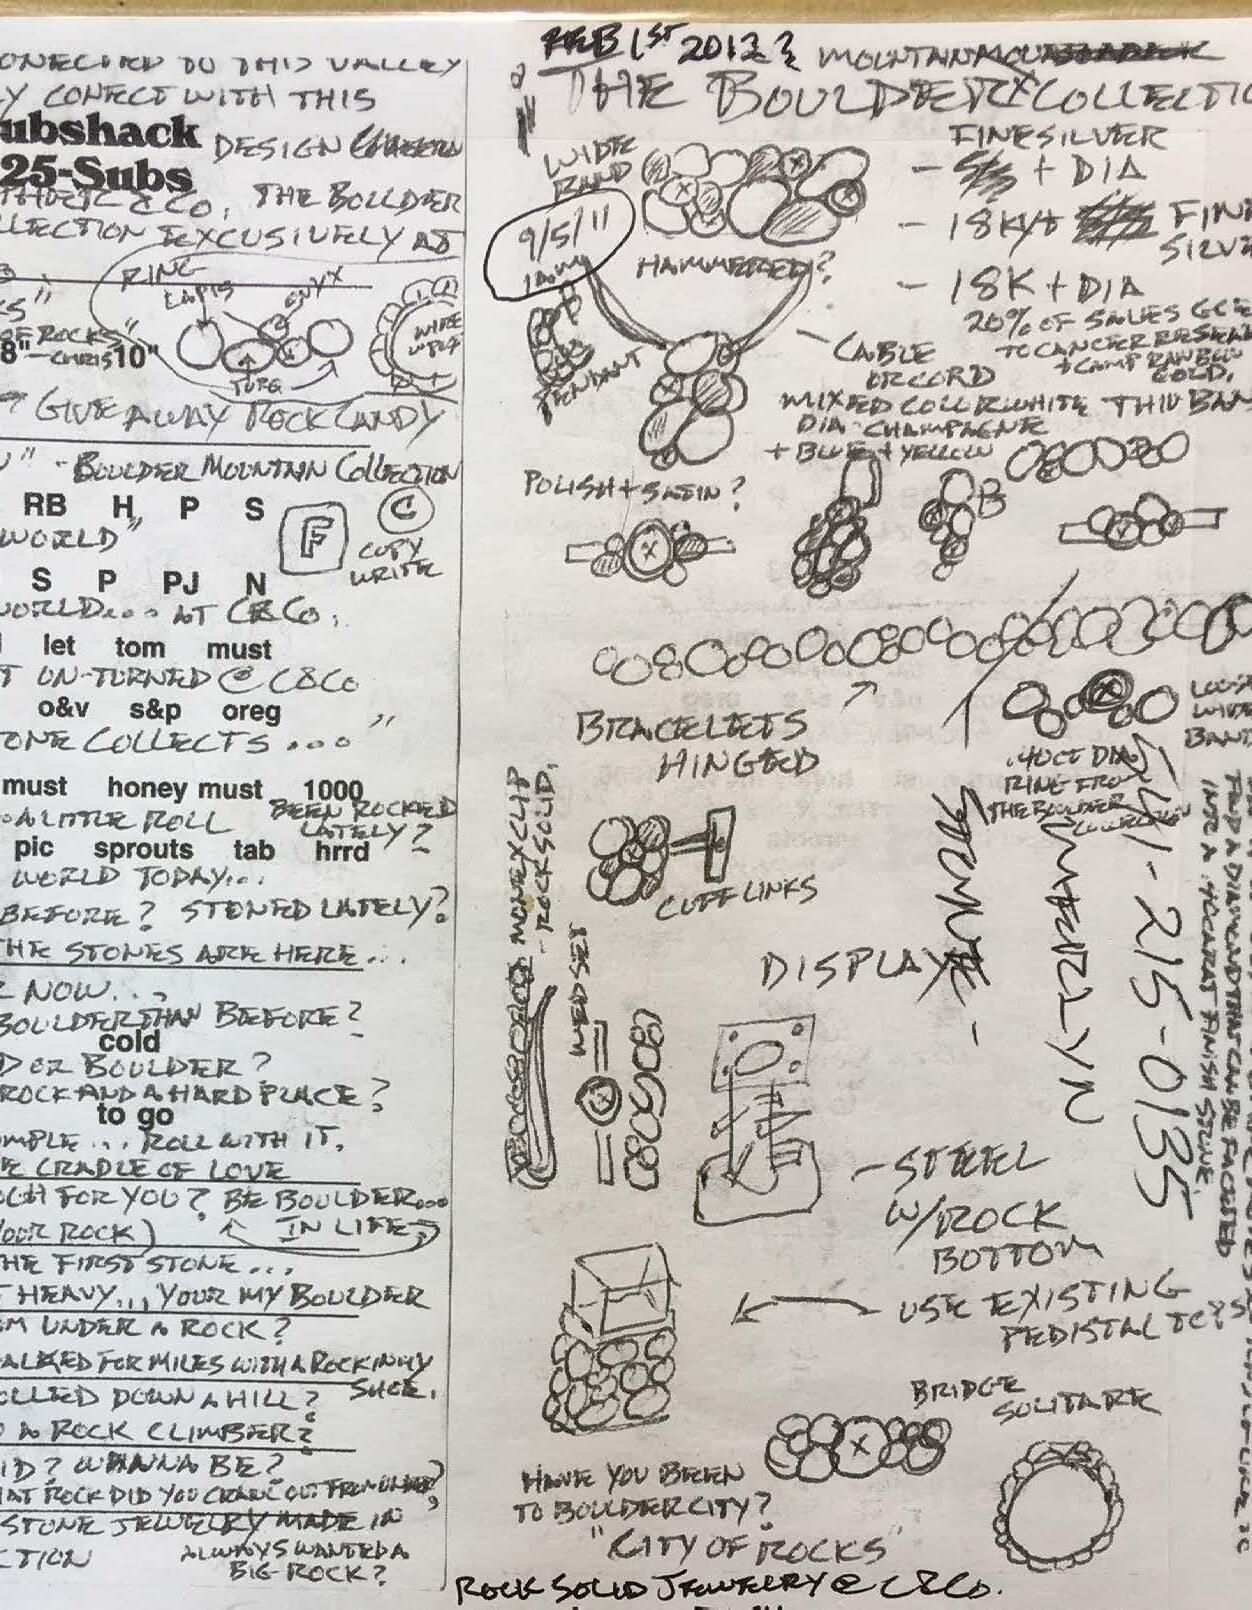 TO THIS VALLEY
CONECT WITH THIS
ubshack
DESIGN
25-Subs
& CO, THE BOULDER
EXCUSIVELY AT
RING
LAPIS
ONYX
WIRE
ROCKS"
8"-CHRIS 10"
TURQ
GIVE AWAY ROCK CANDY
" - BOULDER MOUNTAIN COLLECTION
RB H P S
WORLD"
F
C
COPY
WRITE
S P PJ N
WORLD... AT C&CO.
let tom must
ON-TURNED @ C&CO
o&v s&p oreg
ONE COLLECTS ... "
must honey must 1000
A LITTLE ROLL
BEEN ROCKED
LATELY?
pic sprouts tab hrrd
WORLD TODAY...
BEFORE? STONED LATELY?
THE STONES ARE HERE...
NOW...
BOULDER THAN BEFORE?
cold
OR BOULDER?
ROCK AND A HARD PLACE?
to go
... ROLL WITH IT.
CRADLE OF LOVE
FOR YOU? BE BOULDER...
YOUR ROCK)
IN LIFE
THE FIRST STONE...
HEAVY... YOUR MY BOULDER
UNDER A ROCK?
FOR MILES WITH A ROCK IN MY
SHOE.
DOWN A HILL?
A ROCK CLIMBER?
WANNA BE?
ROCK DID YOU CRAWL OUT FROM UNDER?
STONE JEWELRY MADE IN
CTION
ALWAYS WANTED A
BIG ROCK?
FEB 1ST 2012? MOUNTAIN
THE BOULDER COLLECTIO
WIDE
BAND
FINE SILVER
- + DIA
- 18KY+ FINE
SILVE
9/5/11
HAMMERED?
- 18K + DIA
20% OF SALES
TO CANCER RESEAR
+ CAMP RAINBOW
GOLD.
PENDANT
CABLE
OR CORD
MIXED COLLR WHITE
DIA - CHAMPAGNE
+ BLUE + YELLOW
THIN BAN
POLISH + SATIN?
BRACELETS
HINGED
WIDE
BAND
.40CT DIA
RING FROM
THE BOULDER
COLLECTION
MONEY CLIP
- ROCK SOLID.
CUFF LINKS
WED SET
DISPLAY
1-215-0135
FIND A DIAMOND THAT CAN BE FACETED
INTO A .40 CARAT FINISH STONE.
- STEEL
W/ROCK
BOTTOM
USE EXISTING
PEDISTAL
BRIDGE
SOLITARE
HAVE YOU BEEN
TO BOULDER CITY?
"CITY OF ROCKS"
ROCK SOLID JEWELRY @ C&CO.